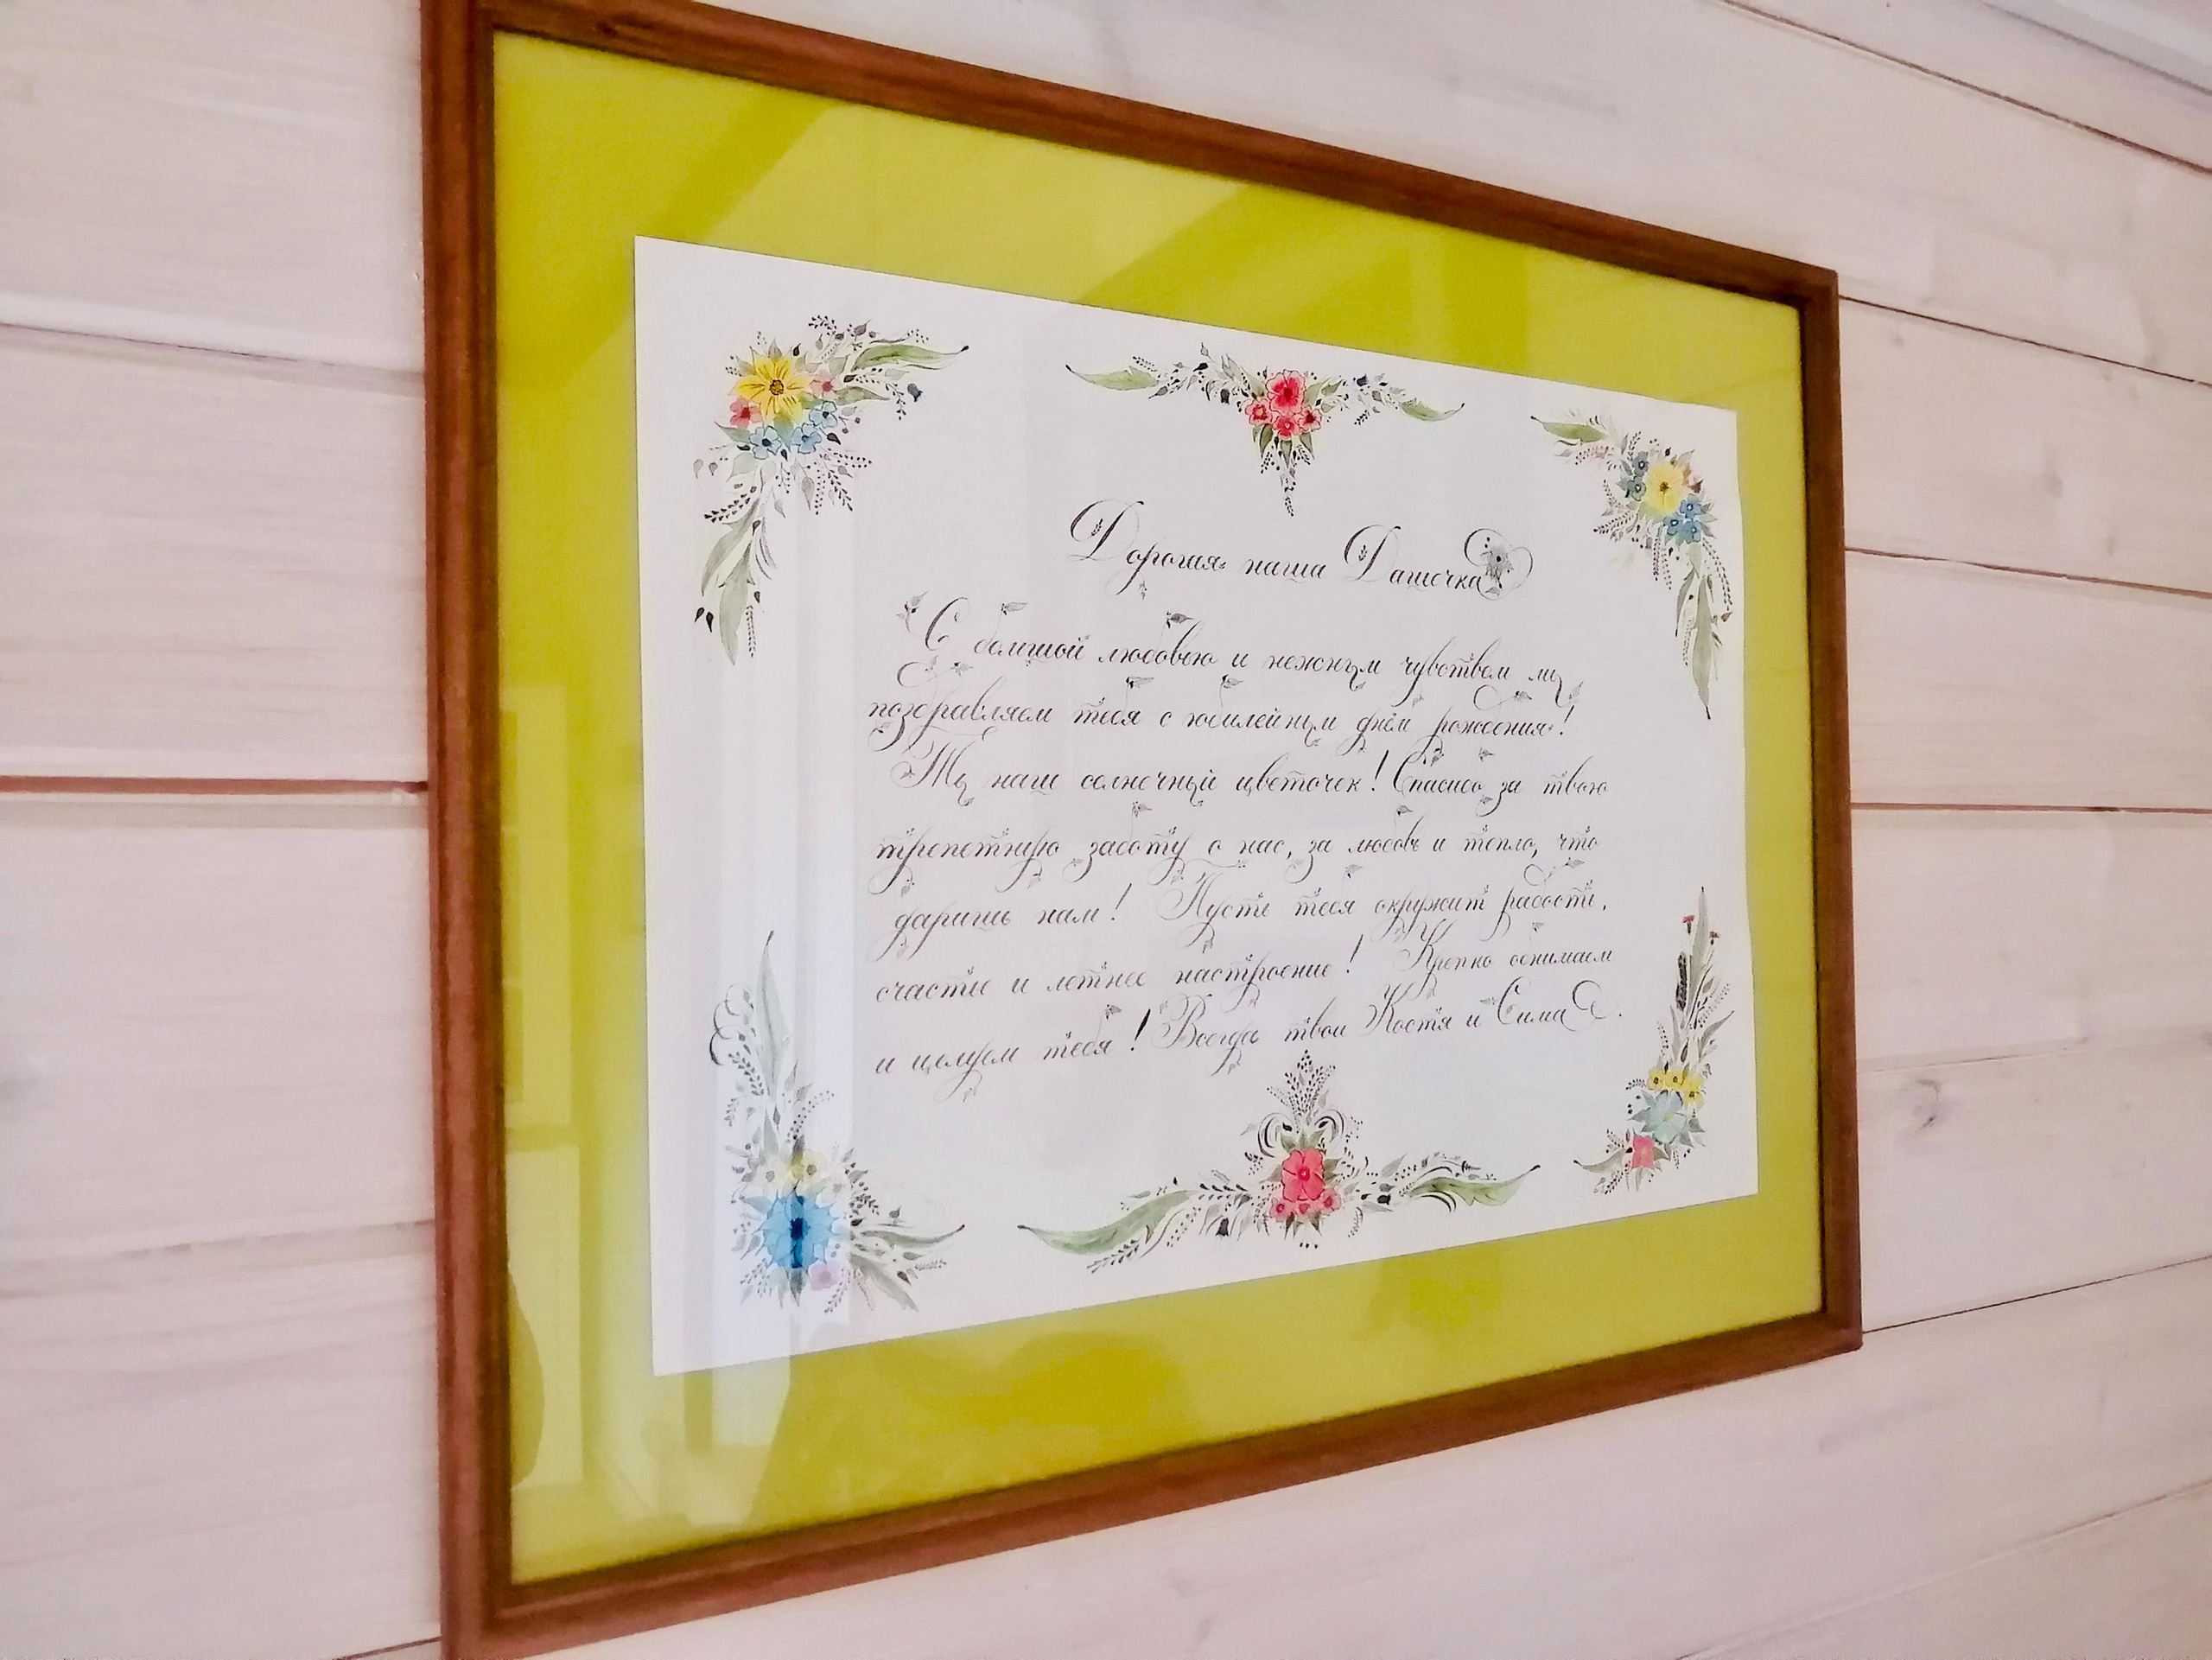 Дорогая наша Дашечка!
С большой любовью и нежным чувством мы
поздравляем тебя с юбилейным днём рождения!
Ты наш солнечный цветочек! Спасибо за твою
трепетную заботу о нас, за любовь и тепло, что
даришь нам! Пусть тебя окружит радость,
счастье и летнее настроение! Крепко обнимаем
и целуем тебя! Всегда твои Костя и Сима.